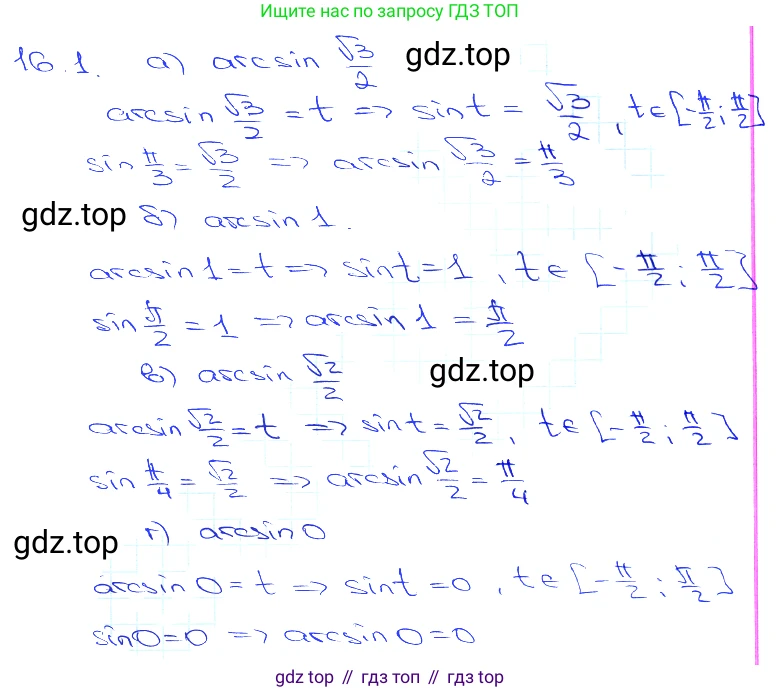 Ищите нас по запросу ГДЗ ТОП
16.1. а) arcsin √3/2 gdz.top
arcsin √3/2 = t => sin t = √3/2, t ∈ [-π/2; π/2]
sin π/3 = √3/2 => arcsin √3/2 = π/3
gdz.top б) arcsin 1.
arcsin 1 = t => sin t = 1, t ∈ [-π/2; π/2]
sin π/2 = 1 => arcsin 1 = π/2
в) arcsin √2/2 gdz.top
arcsin √2/2 = t => sin t = √2/2, t ∈ [-π/2; π/2]
sin π/4 = √2/2 => arcsin √2/2 = π/4
gdz.top г) arcsin 0
arcsin 0 = t => sin t = 0, t ∈ [-π/2; π/2]
sin 0 = 0 => arcsin 0 = 0
gdz top // гдз топ // gdz top